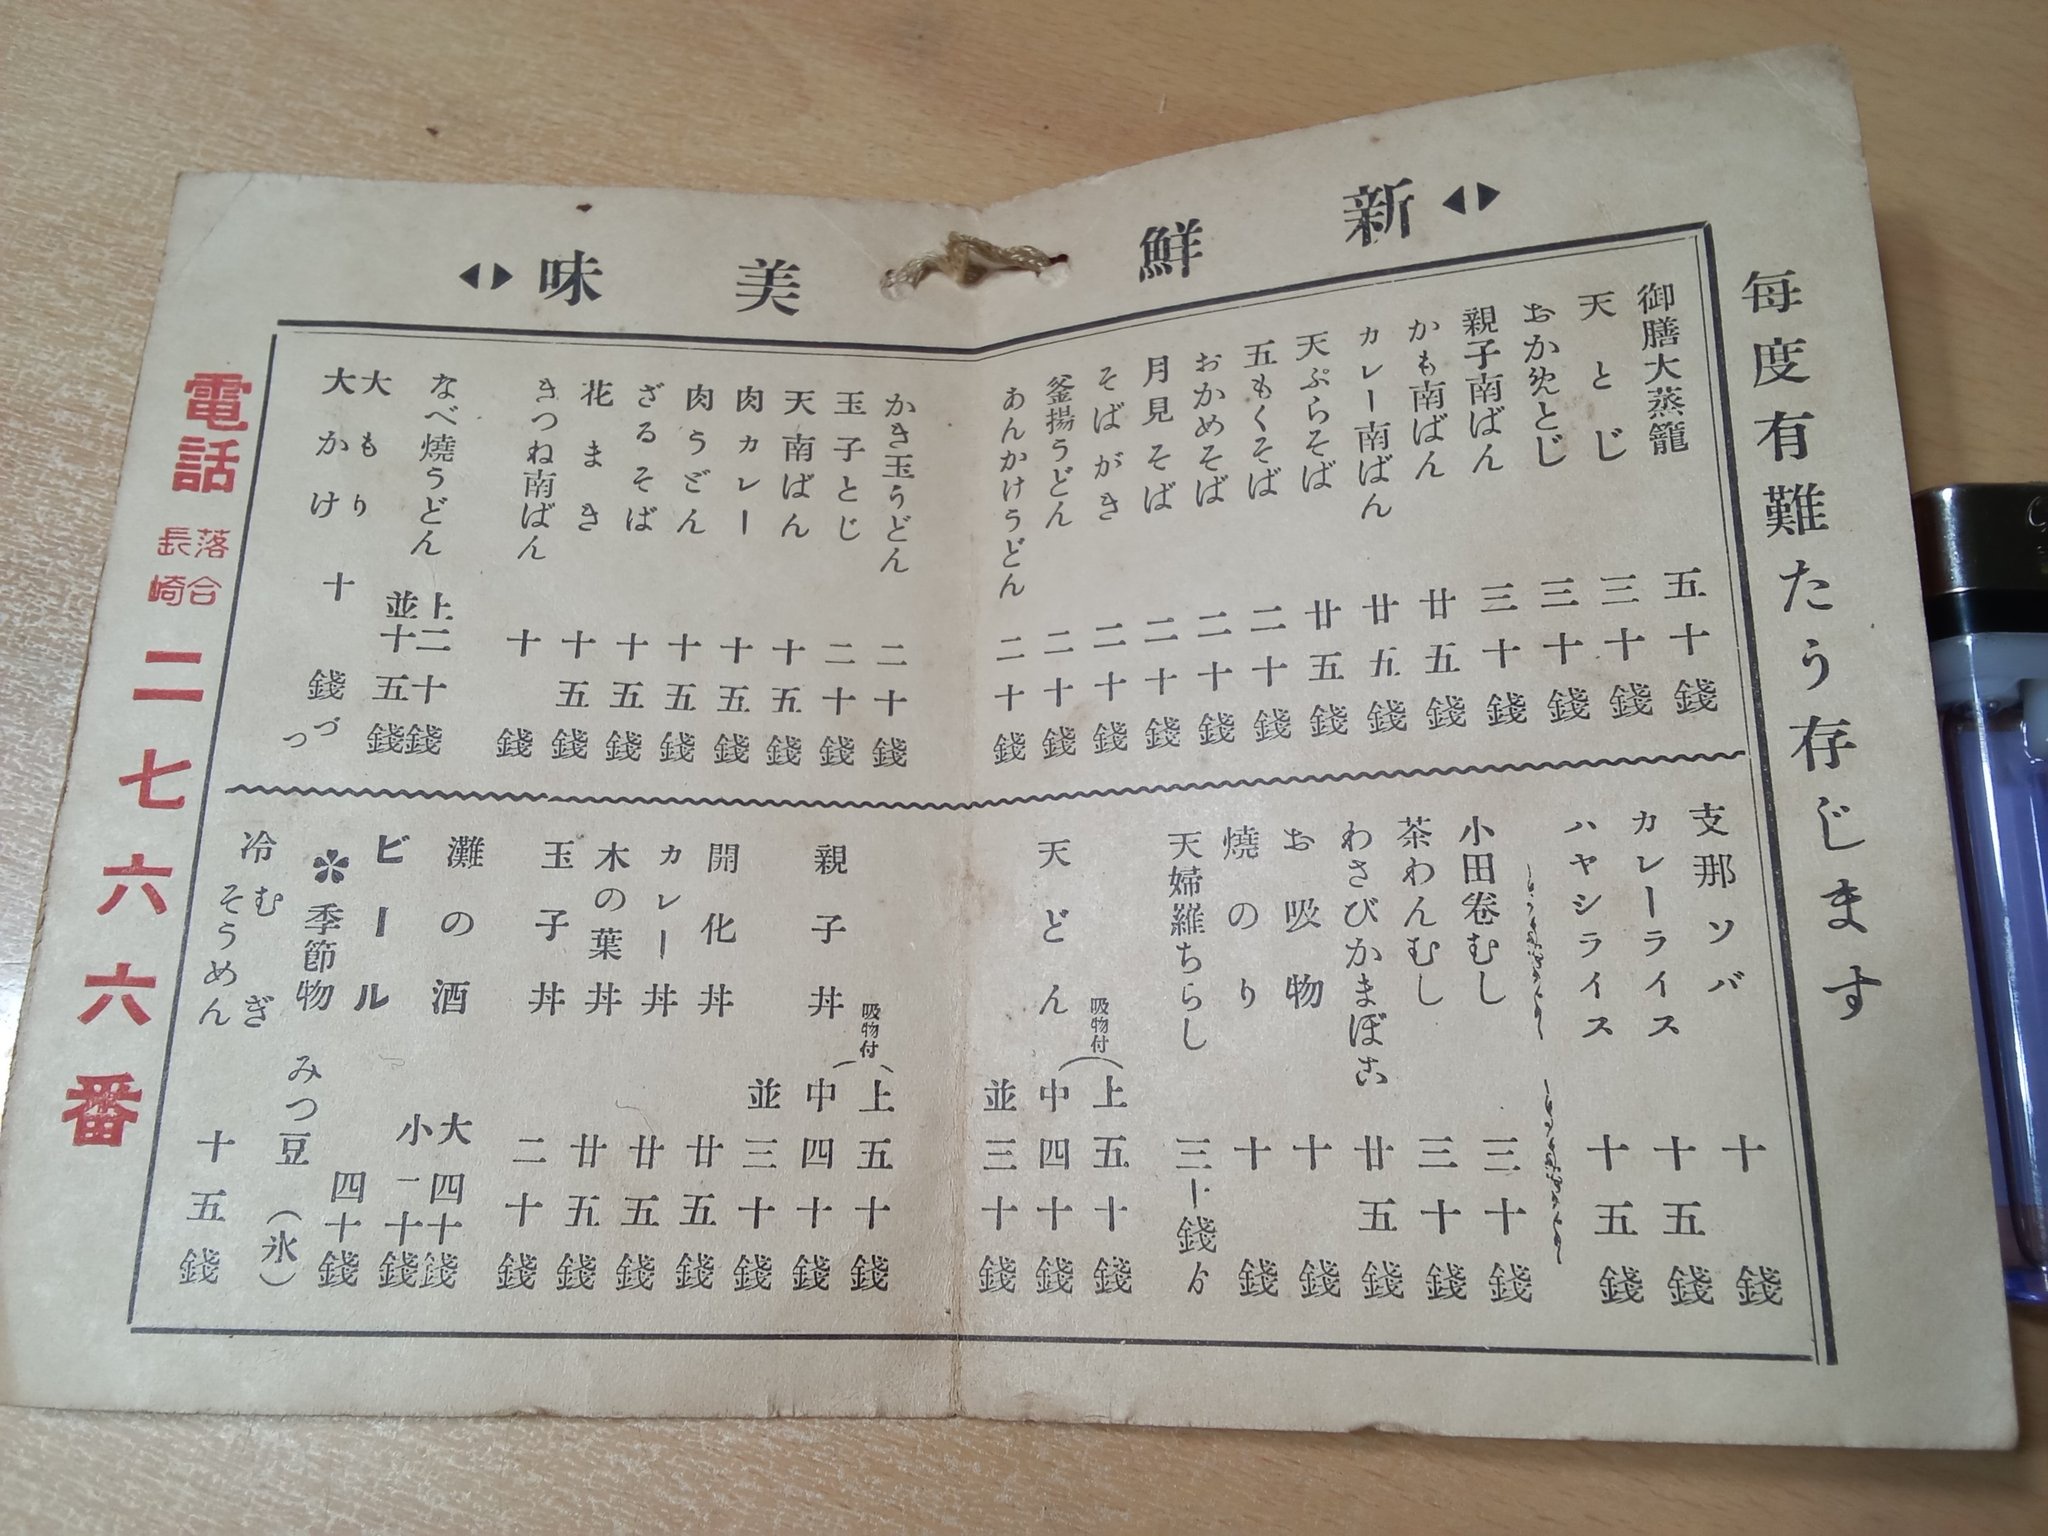 毎度有難たう存じます
新鮮美味
御膳大蒸籠 五十錢
天とじ 三十錢
おかめとじ 三十錢
親子南ばん 三十錢
かも南ばん 廿五錢
カレー南ばん 廿五錢
天ぷらそば 廿五錢
五もくそば 二十錢
おかめそば 二十錢
月見そば 二十錢
そばがき 二十錢
釜揚うどん 二十錢
あんかけうどん 二十錢
かき玉うどん 二十錢
玉子とじ 二十錢
天南ばん 十五錢
肉カレー 十五錢
肉うどん 十五錢
ざるそば 十五錢
花まき 十五錢
きつね南ばん 十錢
なべ燒うどん 上二十錢 並十五錢
大もり
大かけ 十錢づつ
支那ソバ 十錢
カレーライス 十五錢
ハヤシライス 十五錢
小田卷むし 三十錢
茶わんむし 三十錢
わさびかまぼこ 廿五錢
お吸物 十錢
燒のり 十錢
天婦羅ちらし 三十錢より
天どん 吸物付(上五十錢 中四十錢 並三十錢
親子丼 吸物付(上五十錢 中四十錢 並三十錢
開化丼 廿五錢
カレー丼 廿五錢
木の葉丼 廿五錢
玉子丼 二十錢
灘の酒 大四十錢 小一十錢
ビール 四十錢
季節物 みつ豆(氷)
冷むぎ
そうめん 十五錢
電話 落合長崎 二七六六番